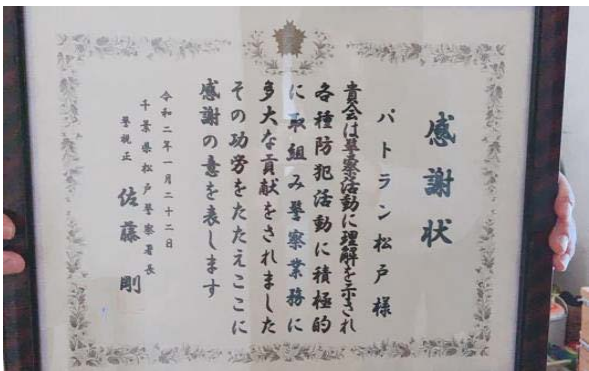 感謝状
パトラン松戸様
貴会は警察活動に理解を示され
各種防犯活動に積極的
に取組み警察業務に
多大な貢献をされました
その功労をたたえここに
感謝の意を表します
令和二年一月二十二日
千葉県松戸警察署長
警視正 佐藤剛